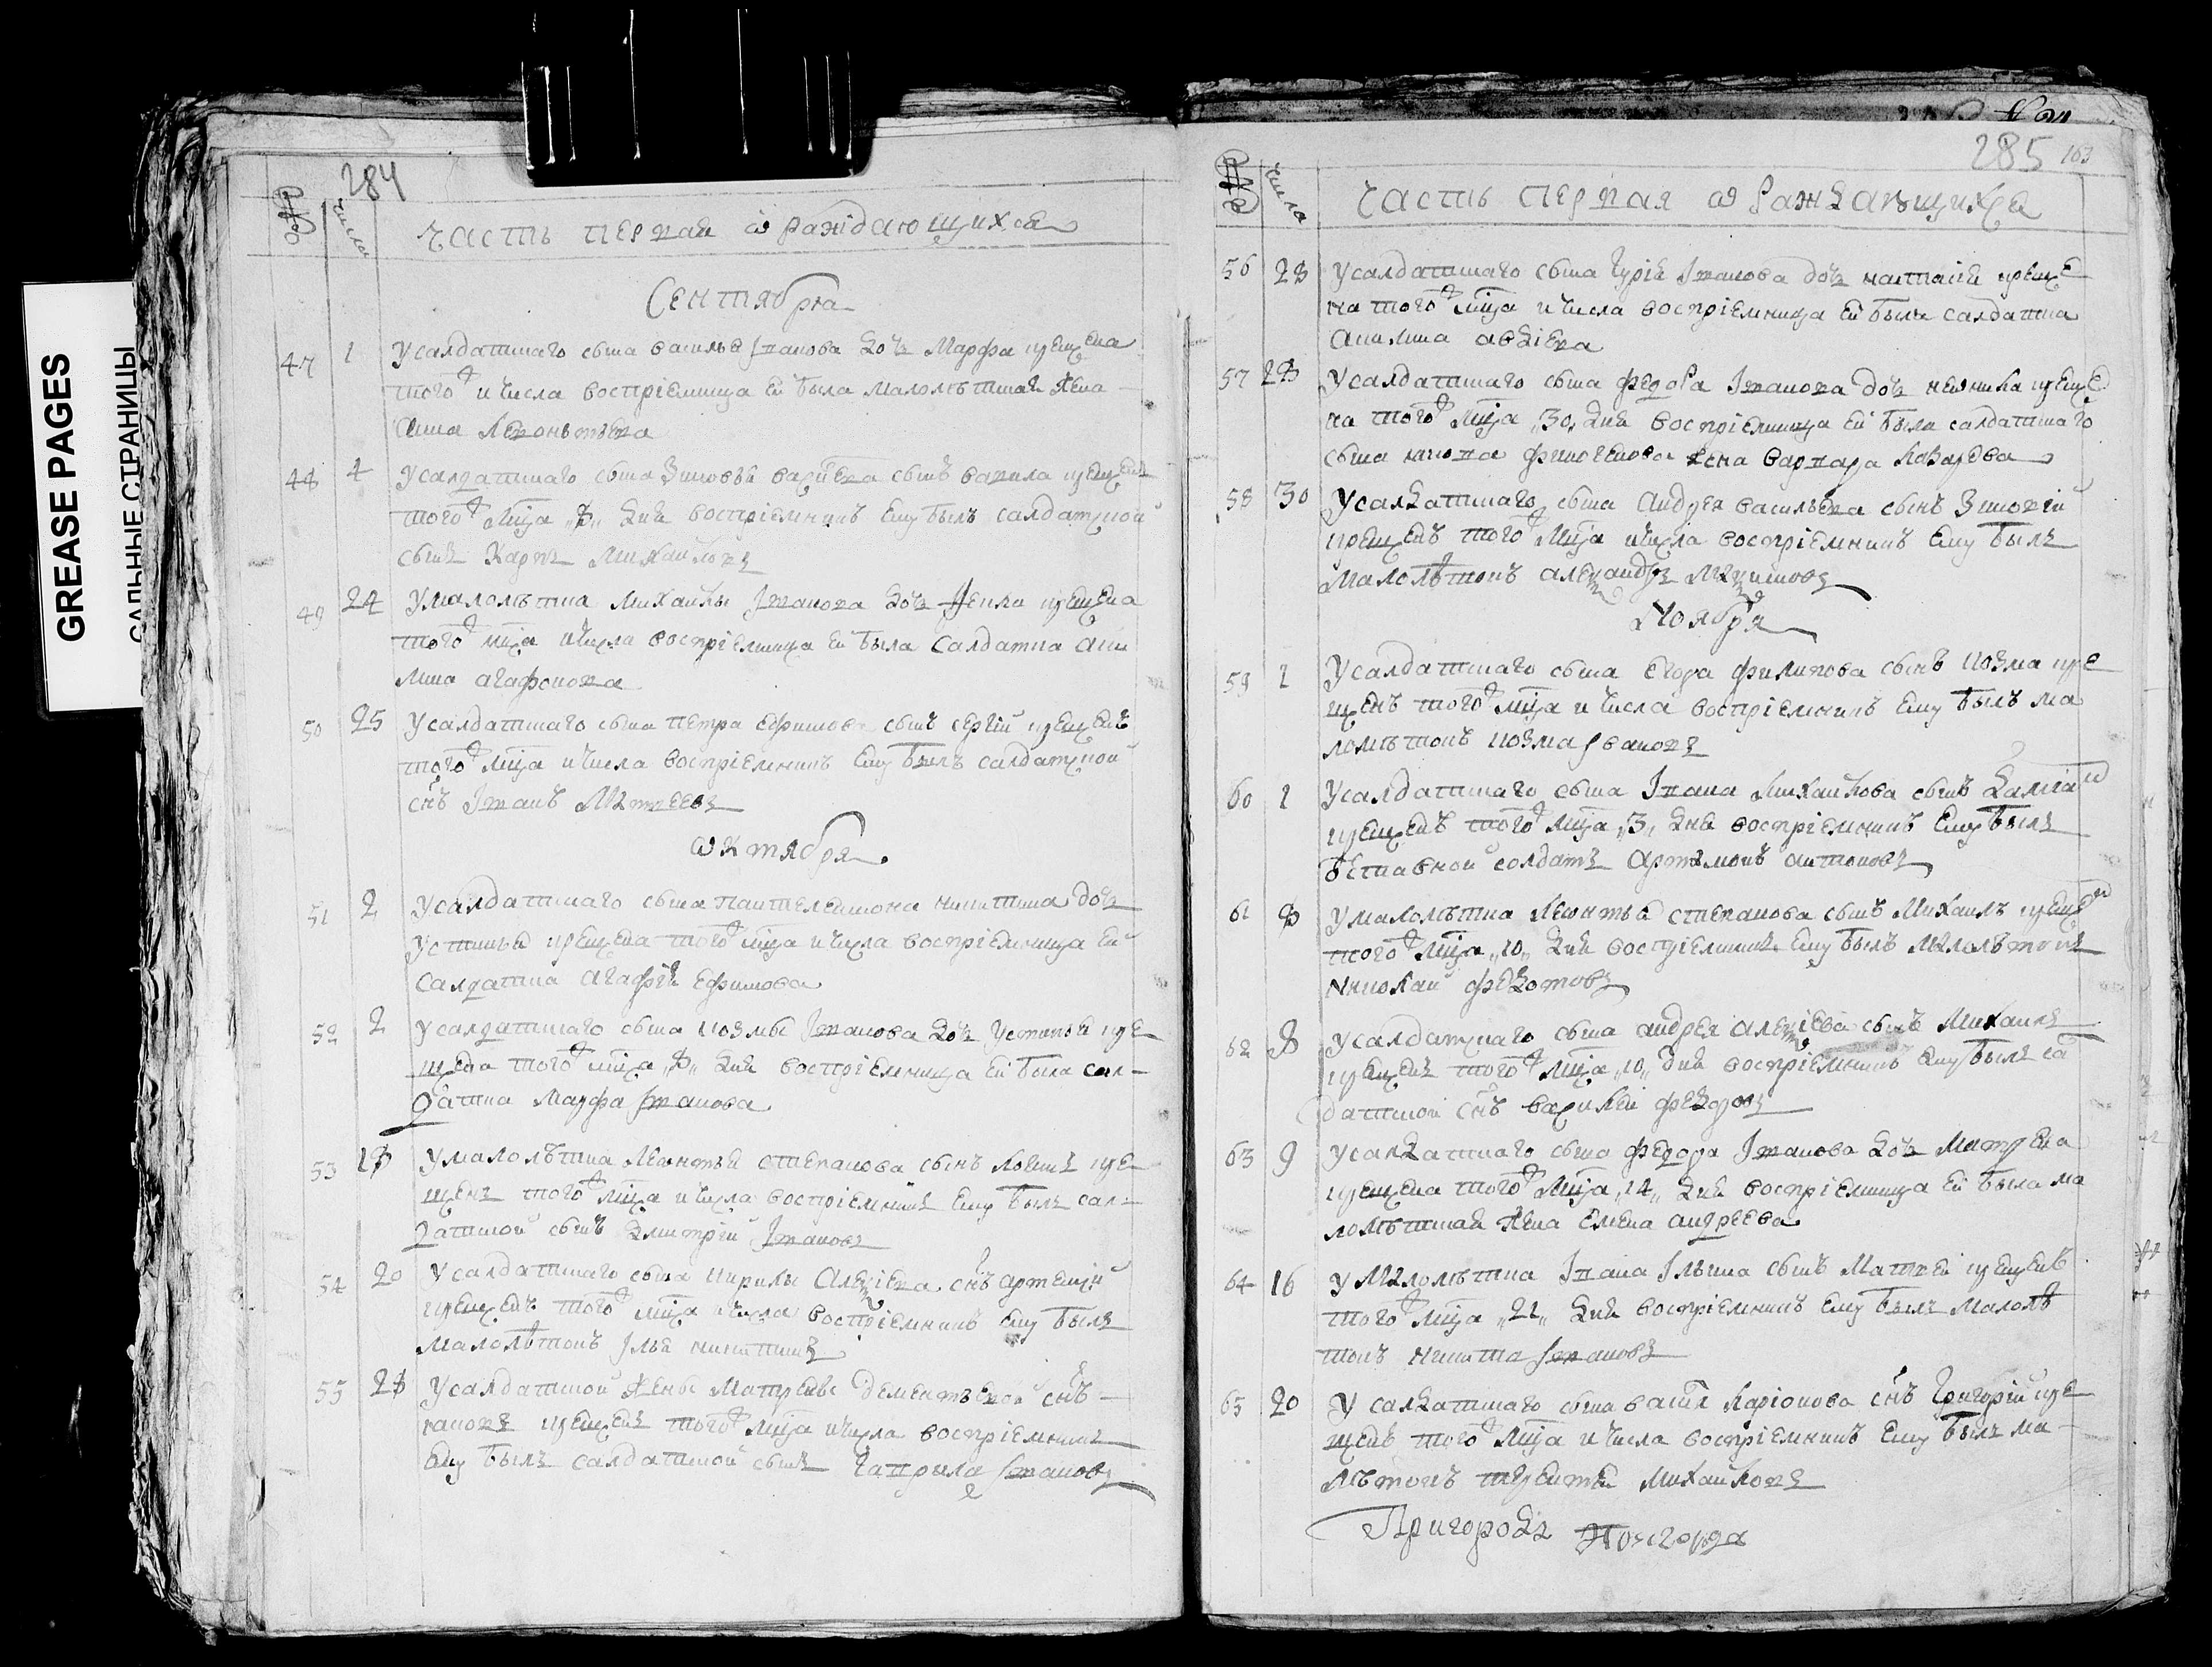 GREASE PAGES
САЛЬНЫЕ СТРАНИЦЫ
284
№
числа
часть первая ѡ раждающихся
Сентября
47 1 У салдатшаго сына василья Іванова дочь Марфа крещена
того и числа воспріемница ей была малолѣтная жена
Анна Леонтьева
48 4 У салдатшаго сына Зиновья сынъ вавила крещенъ
того мца 8 дня воспріемникъ ему былъ салдатской
сынъ Карпъ Михайловъ
49 24 У малолѣтка Михайлы Іванова дочь крещена
того мца и числа воспріемница ей была салдатка аку
лина агафонова
50 25 У салдатшаго сына петра ефимова сынъ сергій крещенъ
того мца и числа воспріемникъ ему былъ салдатской
снъ Іванъ Матвеевъ
ѡктября
51 2 У салдатшаго сына пантелеимона никитина дочь
устинья крещена того мца и числа воспріемница ей
салдатка агафья ефимова
52 2 У салдатшаго сына козмы Іванова дочь устинья кре
щена того мца 8 дня воспріемница ей была сал
датка Марфа Іванова
53 18 У малолѣтка Леонтья степанова сынъ кре
щенъ того мца и числа воспріемникъ ему былъ сал
датской сынъ Дмитрей Івановъ
54 20 У салдатшаго сына кирилы Алексіева снъ артемій
крещенъ того мца и числа воспріемникъ ему былъ
малолѣтокъ Илья никитинъ
55 28 У салдатской жены Матрены дементьевой снъ
крещенъ того мца и числа воспріемникъ
ему былъ салдатской сынъ гаврила Івановъ
285 163
№
числа
часть первая ѡ раждающихся
56 28 У салдатшаго сына Іванова дочь настасія креще
на того мца и числа воспріемница ей была салдатка
акилина авдіева
57 28 У салдатшаго сына федора Іванова дочь креще
на того мца 30 дня воспріемница ей была салдатшаго
сына жена варвара
58 30 У салдатшаго сына андрея васильева сынъ Зиновій
крещенъ того мца и числа воспріемникъ ему былъ
малолѣтокъ александръ
Ноября
59 1 У салдатшаго сына егора филипова сынъ козма кре
щенъ того мца и числа воспріемникъ ему былъ ма
лолѣтокъ козма Івановъ
60 1 У салдатшаго сына Івана михайлова сынъ Даміа
крещенъ того мца 3 дня воспріемникъ ему былъ
ѿставной солдатъ артемонъ антоновъ
61 8 У малолѣтка Леонтья степанова сынъ Михаилъ креще
того мца 10 дня воспріемникъ ему былъ малолѣтокъ
николай федотовъ
62 8 У салдатскаго сына андрея алексіева сынъ Михаилъ
крещенъ того мца 10 дня воспріемникъ ему былъ са
датской снъ василей федоровъ
63 9 У салдатшаго сына федора Іванова дочь Матрена
крещена того мца 14 дня воспріемница ей была ма
лолѣтная жена елена андреева
64 16 У малолѣтка Івана Ільина сынъ Матвей крещенъ
того мца 21 дня воспріемникъ ему былъ малолѣ
токъ никита Івановъ
65 20 У салдатшаго сына василя Ларіонова снъ Григорій кре
щенъ того мца и числа воспріемникъ ему былъ ма
лѣтокъ терентей Михайловъ
Пригородъ